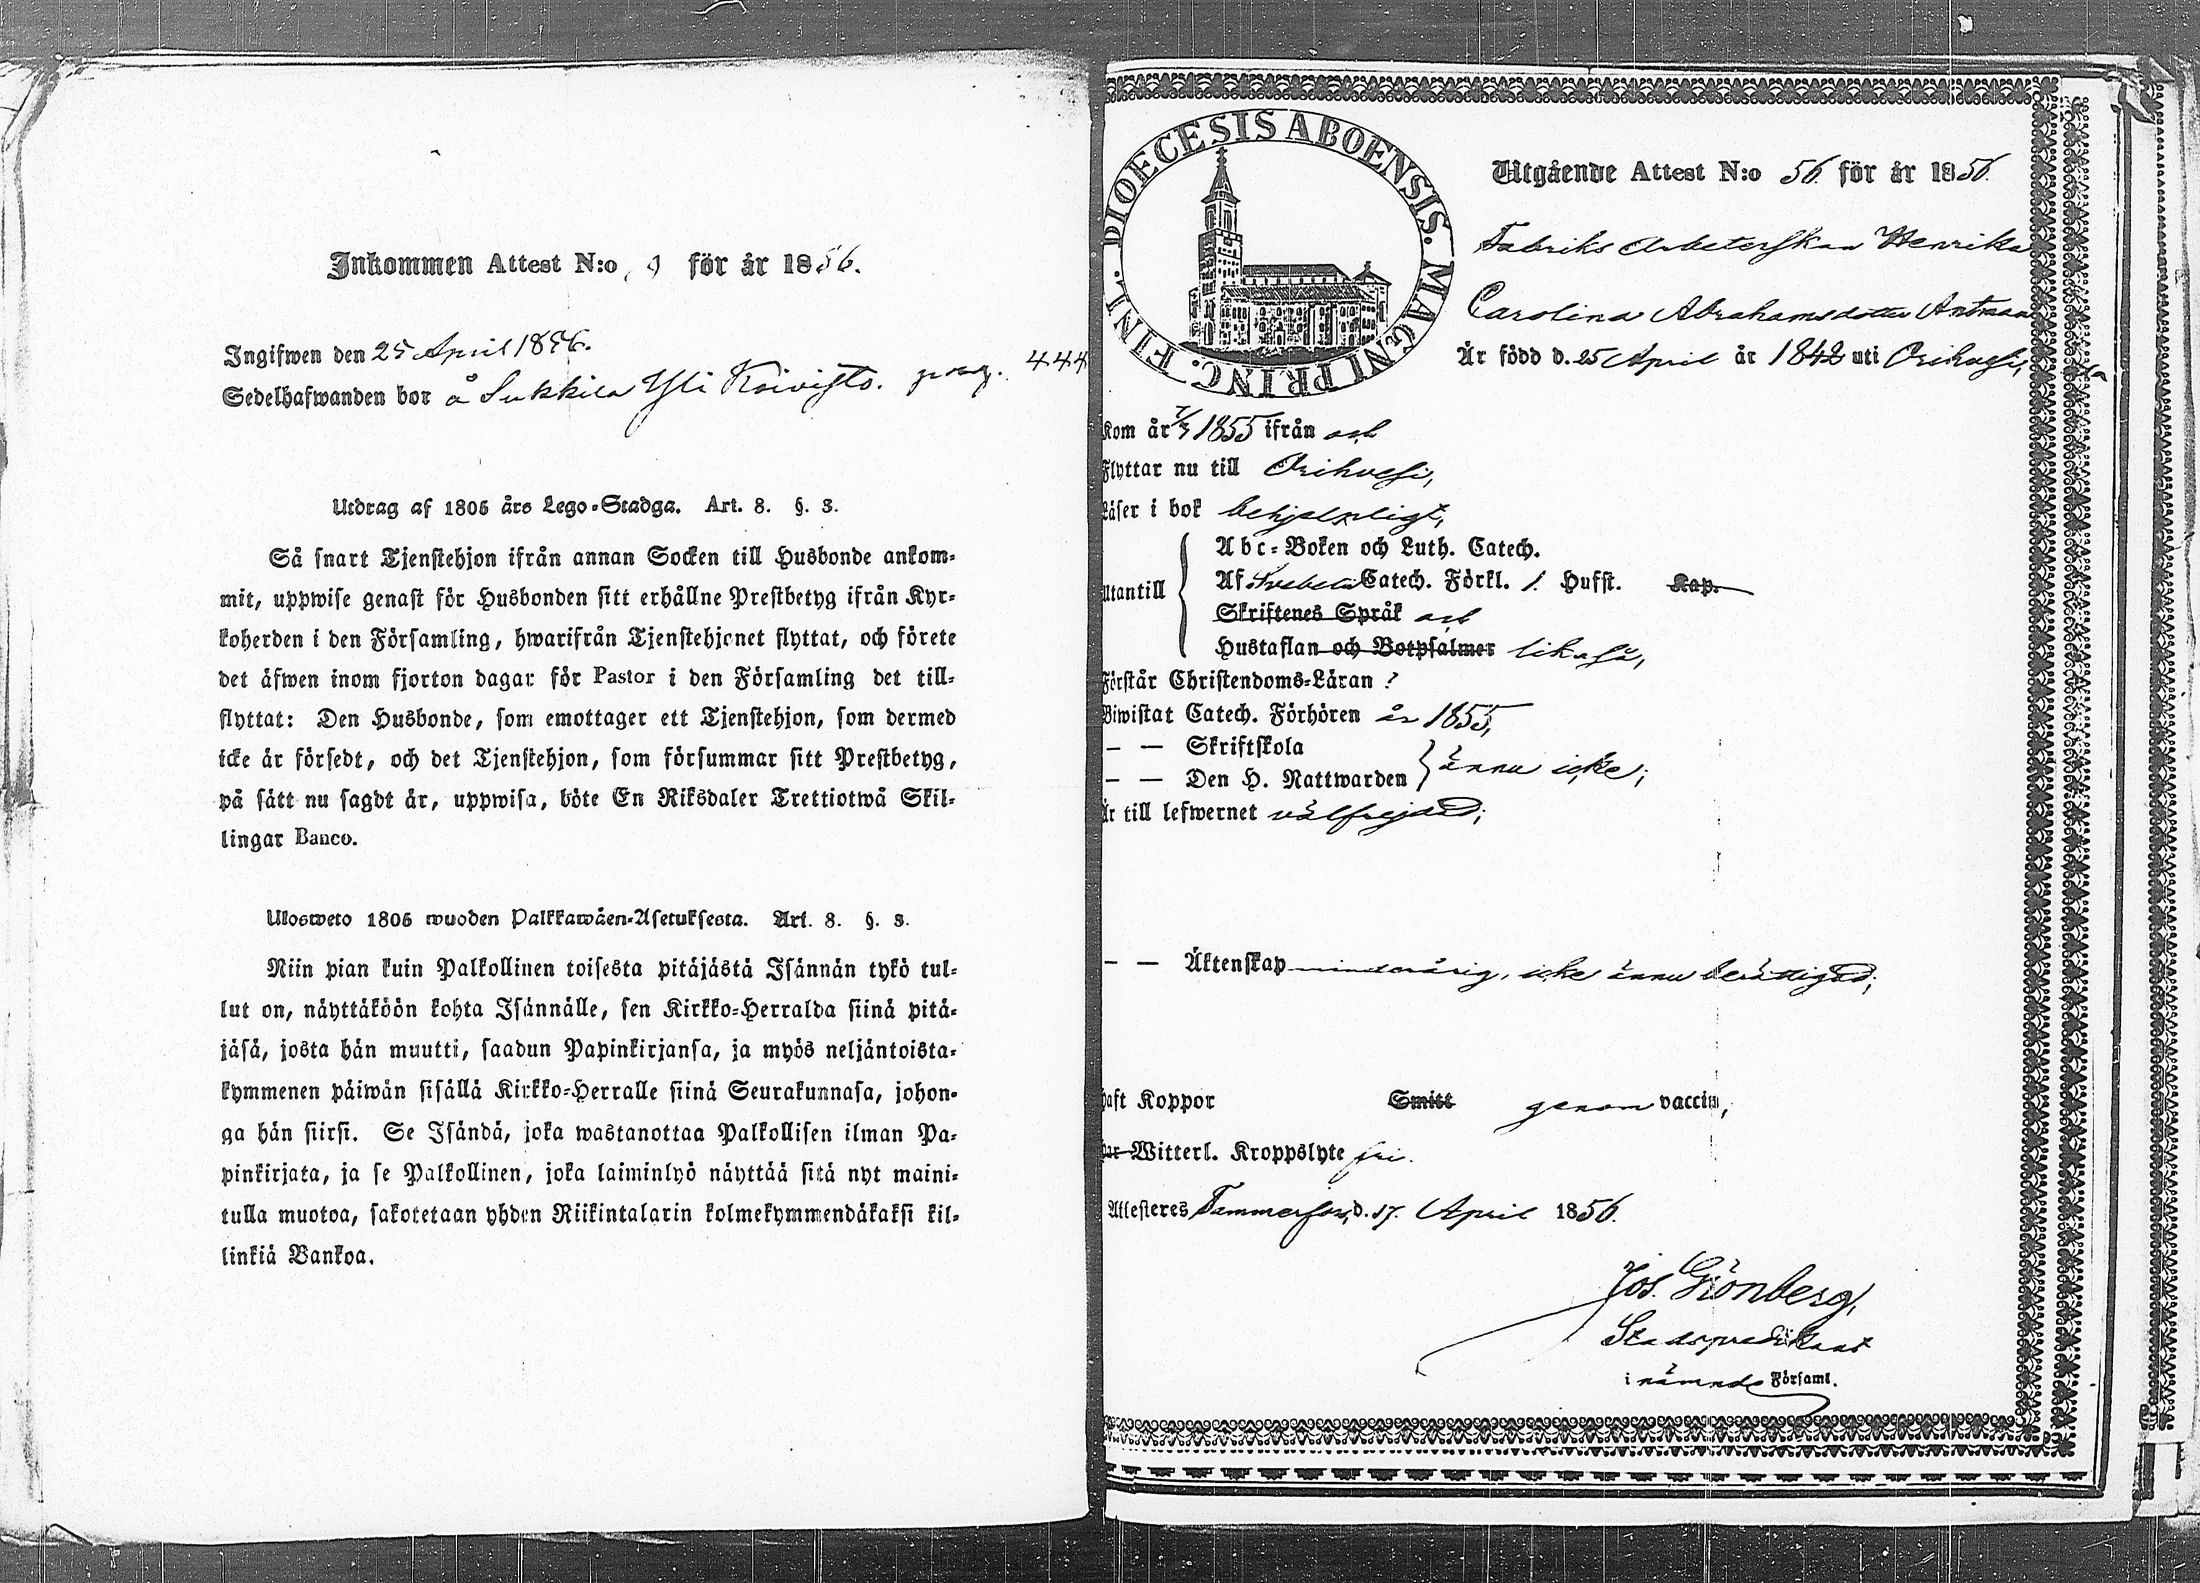 Inkommen Attest N:o 9 för år 1856.
Ingifwen den 25 April 1856.
Sedelhafwanden bor å Sukkila Yli Koivisto. pag. 444
Utdrag af 1805 års Lego-Stadga. Art. 8. §. 3.
Så snart Tjenstehjon ifrån annan Socken till Husbonde ankom-
mit, uppwise genast för Husbonden sitt erhållne Prestbetyg ifrån Kyr-
koherden i den Församling, hwarifrån Tjenstehjonet flyttat, och förete
det äfwen inom fjorton dagar för Pastor i den Församling det till-
flyttat: Den Husbonde, som emottager ett Tjenstehjon, som dermed
icke är försedt, och det Tjenstehjon, som försummar sitt Prestbetyg,
på sätt nu sagdt är, uppwisa, böte En Riksdaler Trettiotwå Skil-
lingar Banco.
Ulosweto 1805 wuoden Palkkawäen-Asetuksesta. Art. 8. §. 3.
Niin pian kuin Palkollinen toisesta pitäjästä Isännän tykö tul-
lut on, näyttäköön kohta Isännälle, sen Kirkko-Herralda siinä pitä-
jäsä, josta hän muutti, saadun Papinkirjansa, ja myös neljäntoista-
kymmenen päiwän sisällä Kirkko-Herralle siinä Seurakunnasa, johon-
ga hän siirsi. Se Isändä, joka wastanottaa Palkollisen ilman Pa-
pinkirjata, ja se Palkollinen, joka laiminlyö näyttää sitä nyt maini-
tulla muotoa, sakotetaan yhden Riikintalarin kolmekymmendäkaksi kil-
linkiä Bankoa.
DIOECESIS ABOENSIS. MAGNI PRINC. FINL.
Utgående Attest N:o 56 för år 1856.
Fabriks arbeterskan Henrika
Carolina Abrahamsdotter Antman
Är född d. 25 April år 1842 uti Orihvesi,
Kom år 1855 ifrån
Flyttar nu till Orihvesi,
Läser i bok behjelpligt,
Utantill
Abc-Boken och Luth. Catech.
Af Svebelii Catech. Förkl. 1. Hufst. Kap.
Skriftenes Språk och
Hustaflan och Botpsalmer likaså,
Förstår Christendoms-Läran
Biwistat Catech. Förhören år 1855,
— — Skriftskola
— — Den H. Nattwarden ännu icke;
Är till lefwernet välfrejdad;
— — Äktenskap minderårig, icke ännu berättigad;
haft Koppor Smitt genom vaccin,
har Witterl. Kroppslyte fri.
Attesteres Tammerfors, d. 17. April 1856.
Jos. Grönberg,
Stadspredikant
i nämnde Församl.